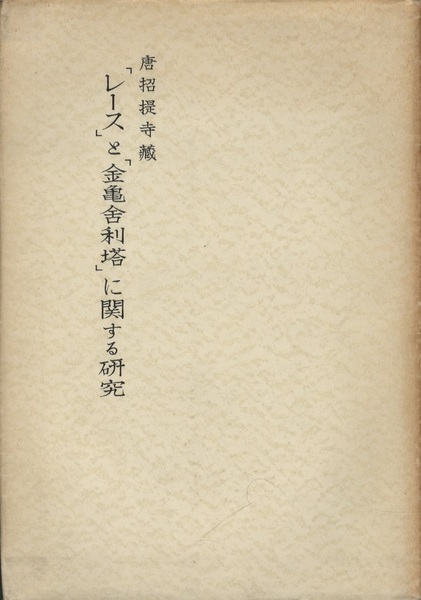 唐招提寺藏
「レース」と「金亀舎利塔」に関する研究